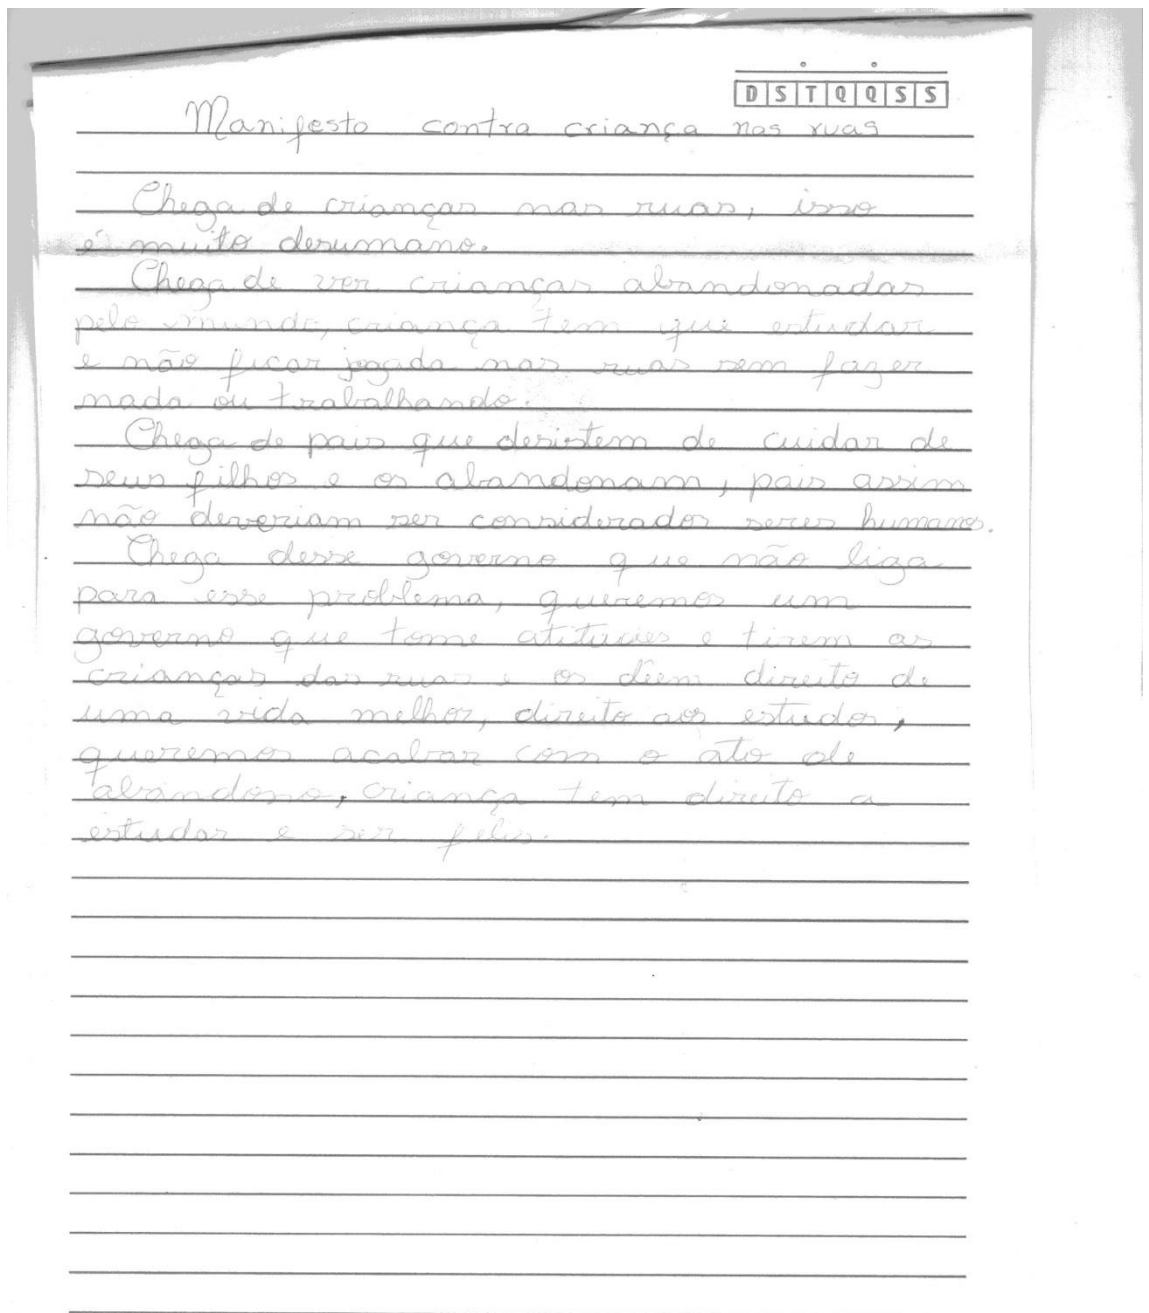 D S T Q Q S S
Manifesto contra criança nas ruas
Chega de crianças nas ruas, isso
é muito desumano.
Chega de ver crianças abandonadas
pelo mundo, criança tem que estudar
e não ficar jogada nas ruas sem fazer
nada ou trabalhando.
Chega de pais que desistem de cuidar de
seus filhos e os abandonam, pais assim
não deveriam ser considerados seres humanos.
Chega desse governo que não liga
para esse problema, queremos um
governo que tome atitudes e tirem as
crianças das ruas e os dêem direito de
uma vida melhor, direito aos estudos,
queremos acabar com o ato de
abandono, criança tem direito a
estudar e ser felis.